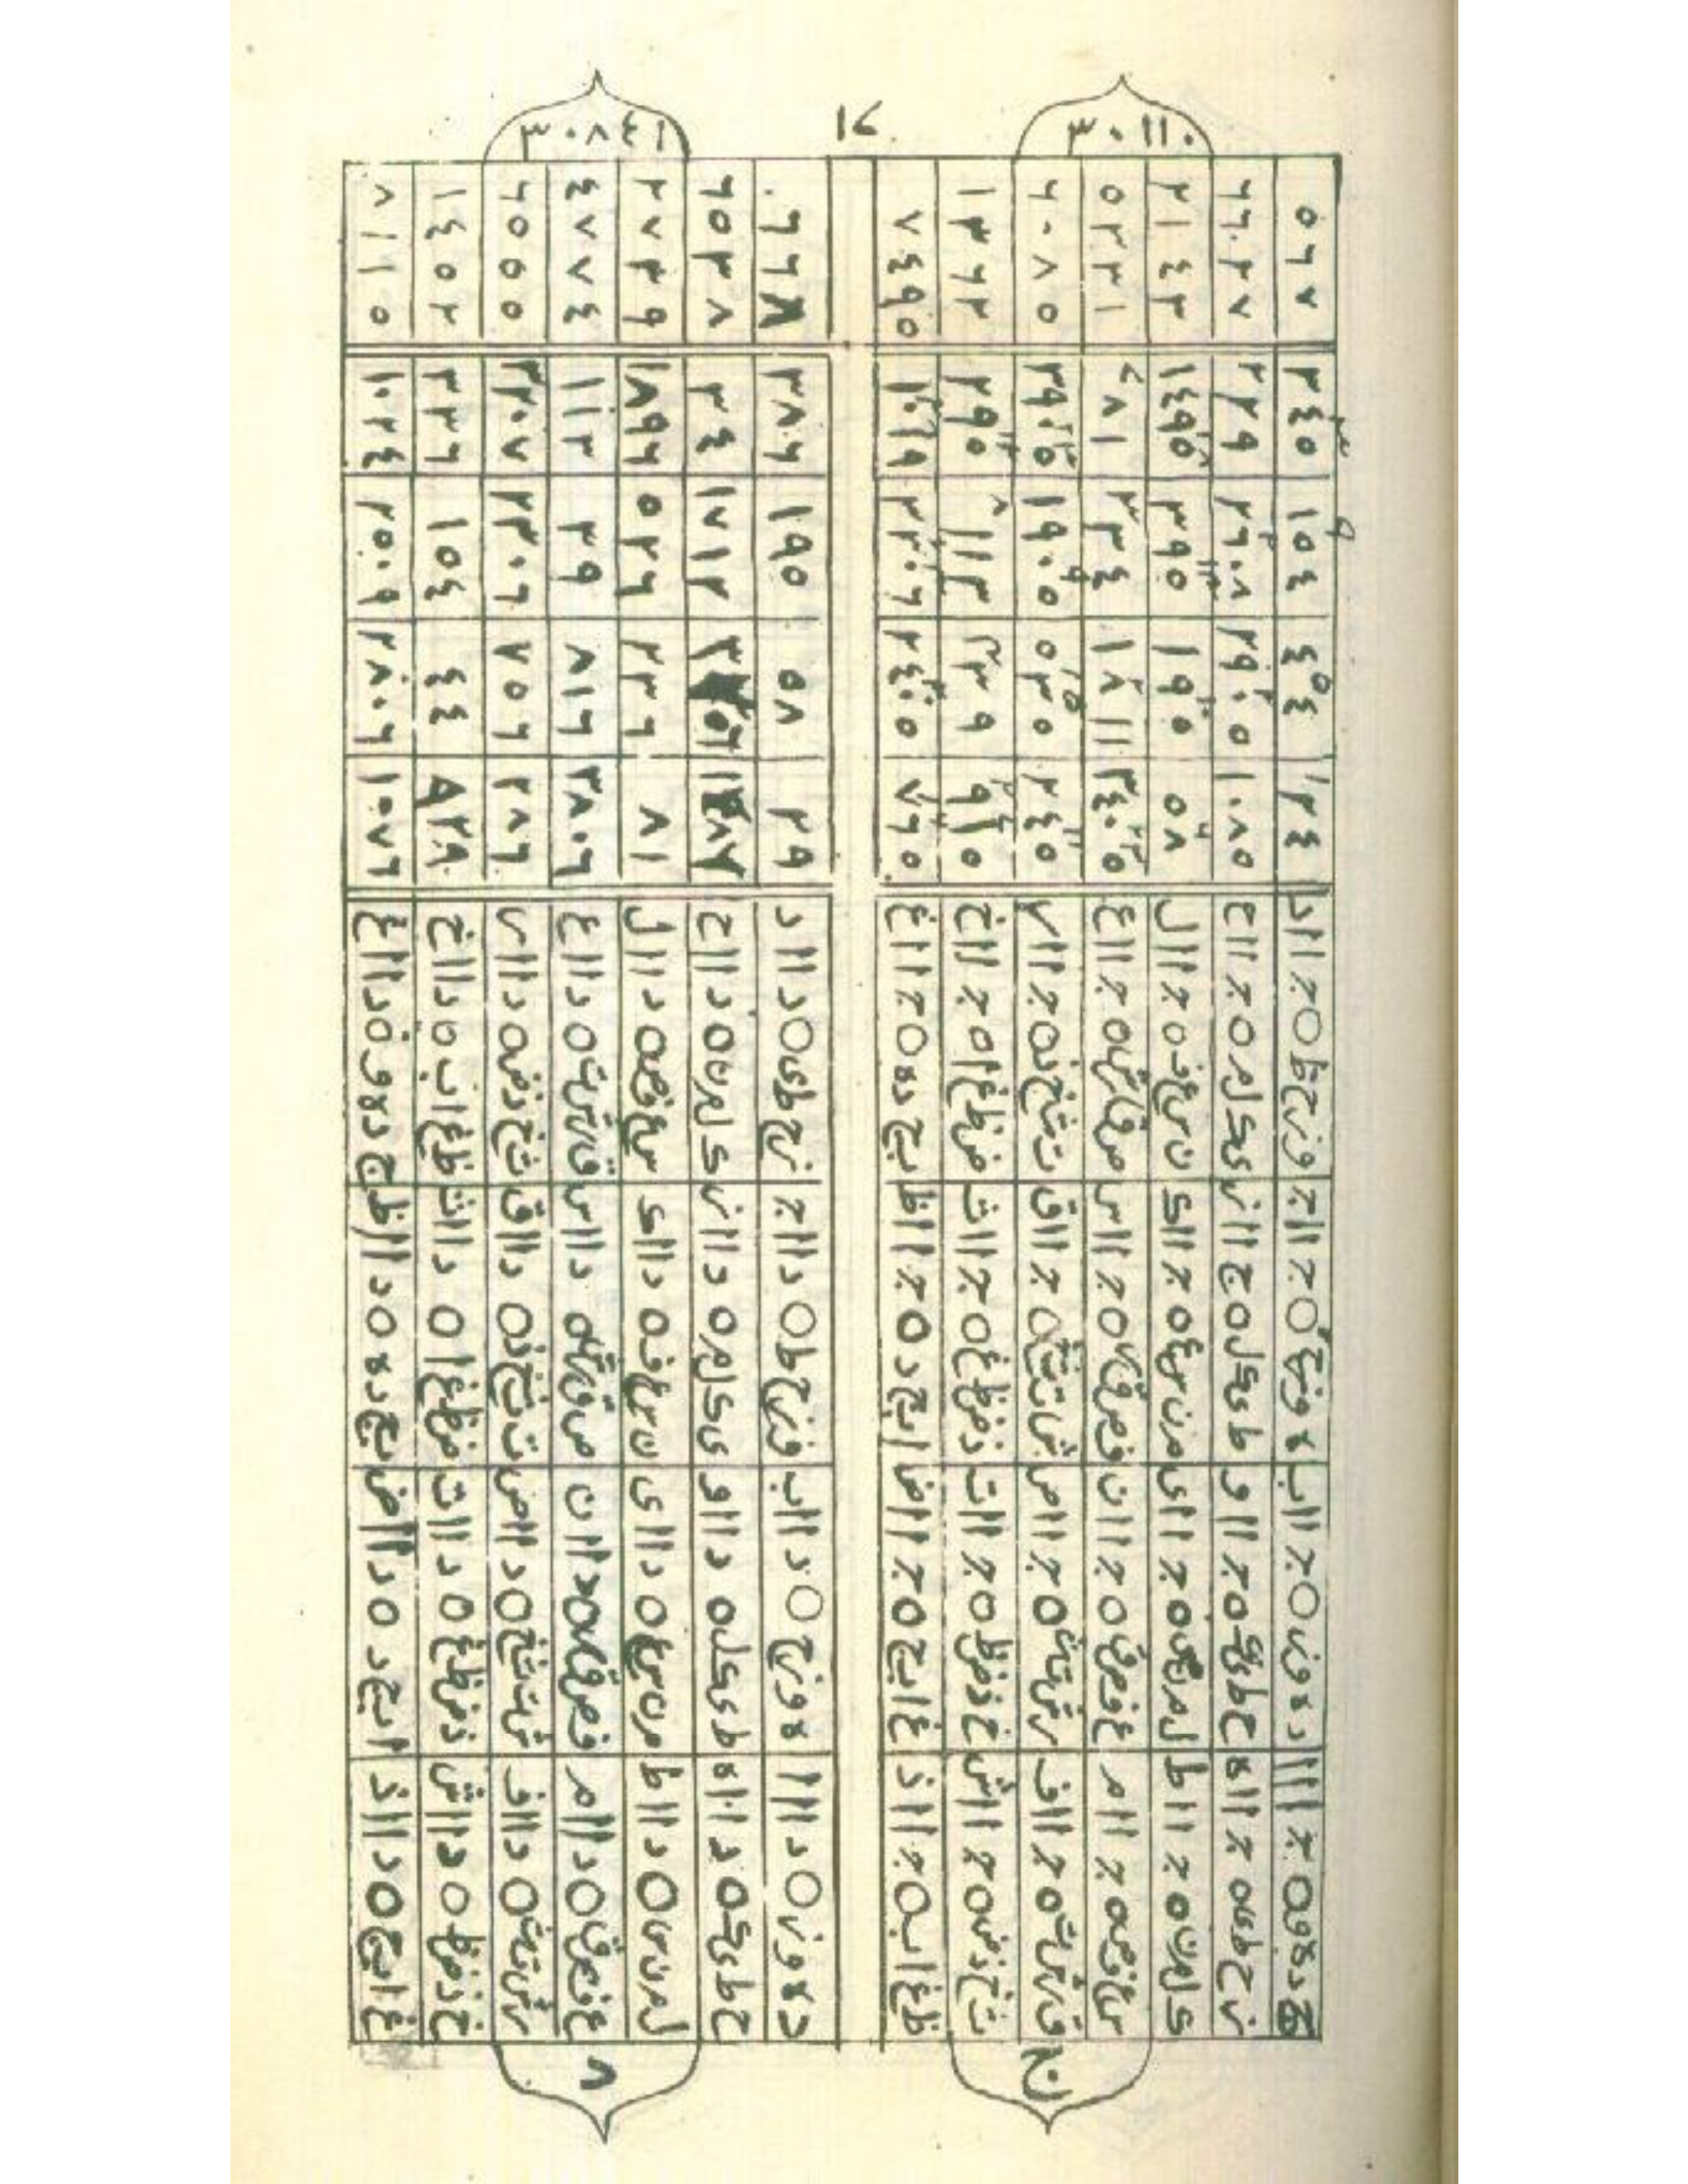 ٣٠١١٠
جدهو○ ج ااا دهوز○ ج ااب هوزح○ ج ااج وزحط○ ج ااد ١٢٤ ٤٥٤ ١٥٤ ٣٤٥ ٥٦٧
زحطى○ ج ااه حطىك○ ج ااو طىكل○ ج ااز ىكلم○ ج ااح ١٠٨٥ ٢٩٠٥ ٢٦٠٨ ٢٢٢٩ ٦٦٠٢٧
كلمن○ ج ااط لمنس○ ج ااى منسع○ ج ااك نسعف○ ج اال ٥٨ ١٩٠ ٣٩٥ ١٤٩٥ ٢١٤٣
سعفص○ ج اام عفصق○ ج اان فصقر○ ج ااس صقرش○ ج ااع ٣٤٠٥ ١٨١١ ٣٣٤ ٢٨١ ٥٢٣١
قرشت○ ج ااف رشتث○ ج ااص شتثخ○ ج ااق تثخذ○ ج اار ٢٤٥ ٥٣٥ ١٩٠٥ ٣٩٠٥ ٦٠٨٥
ثخذض○ ج ااش خذضظ○ ج اات ذضظغ○ ج ااث ضظغا○ ج ااخ ٩١٥ ٢٣٩ ١١٢ ٢٩٥ ١٣٦٢
ظغاب○ ج ااذ غابج○ ج ااض ابجد○ ج ااظ بجده○ ج ااغ ٧٦٥ ٢٤٠٥ ٢٢٠٦ ١٠٦٩ ٧٤٩٥
١٦
٨ ٣٠٨٤١
دهوز○ د ااا هوزح○ د ااب وزحط○ د ااج زحطى○ د ااد ٢٩ ٥٨ ١٩٥ ٣٨٠٦ ٠٦٦٨
حطىك○ د ااه طىكل○ د ااو ىكلم○ د ااز كلمن○ د ااح ١٧١٢ ٣٤ ٦٥٣٨
لمنس○ د ااط منسع○ د ااى نسعف○ د ااك سعفص○ د اال ٨١ ٢٣٦ ٥٢٦ ١٨٩٦ ٢٧٣٩
عفصق○ د اام فصقر○ د اان صقرش○ د ااس قرشت○ د ااع ٣٨٠٦ ٨١٦ ٣٩ ١١٢ ٤٧٧٤
رشتث○ د ااف شتثخ○ د ااص تثخذ○ د ااق ثخذض○ د اار ٢٨٦ ٧٥٦ ٢٣٠٦ ٣٢٠٧ ٦٥٥٥
خذضظ○ د ااش ذضظغ○ د اات ضظغا○ د ااث ظغاب○ د ااخ ٤٤ ١٥٤ ٣٢٦ ١٤٥٢
غابج○ د ااذ ابجد○ د ااض بجده○ د ااظ جدهو○ د ااغ ١٠٧٦ ٢٨٠٦ ٢٥٠٩ ١٠٢٤ ٨١١٥